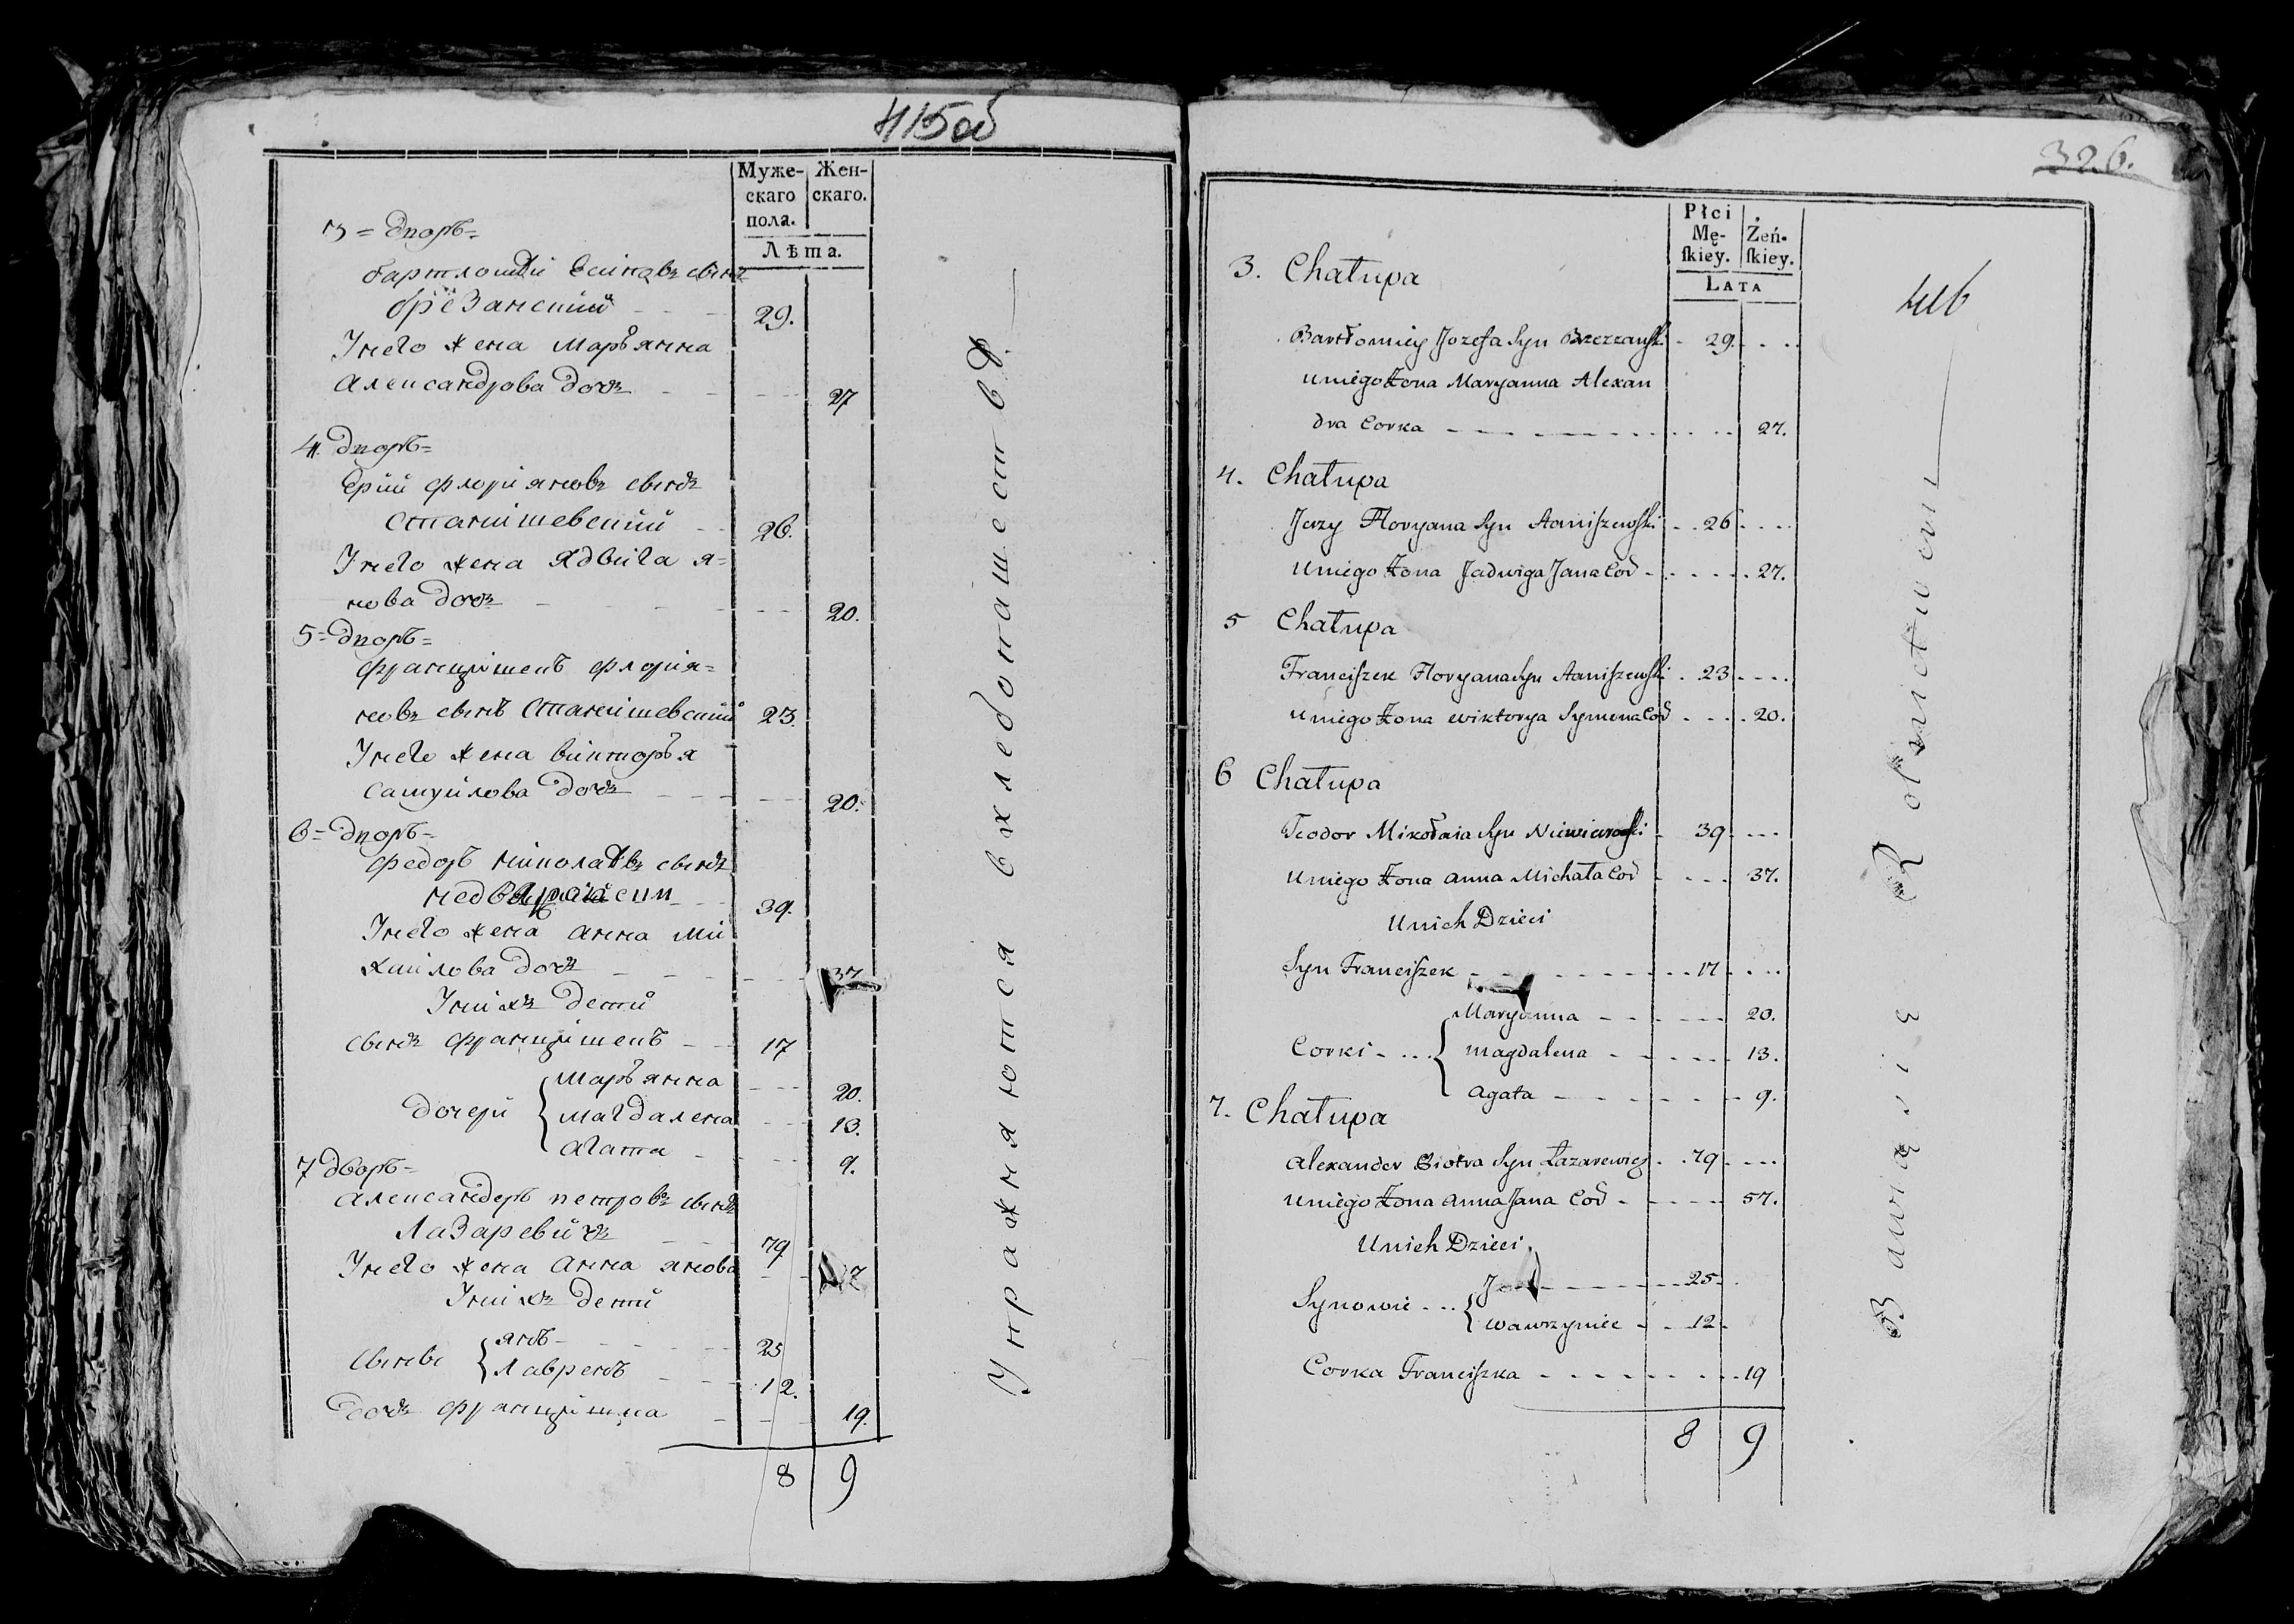 415об
Муже- Жен-
скаго скаго.
пола.
Лѣта.
3 = дворъ =
бартломѣй
29.
Унего жена Марьянна
Александрова дочь 27
4 дворъ =
Ерій флоріяновъ сынъ
Станишевскій 26.
Унего жена Ядвига я=
нова дочь 20.
5 = дворъ =
францишекъ флорія=
новъ сынъ Станишевскій 23.
Унего жена викторья
Самуйлова дочь 20.
6 = дворъ =
федоръ николаевъ сынъ
39.
Унего жена анна Ми
хайлова дочь 37
Унихъ дети
сынъ францишекъ 17
Марьянна 20.
дочери Магдалена 13.
Агата 9.
7 дворъ =
Александеръ петровъ сынъ
Лазаревичъ 79
Унего жена Анна янова 7
Унихъ дети
янъ 25
сыновь Лавренъ 12.
дочь францишка 19.
8 9
Упражняются вхлебопашестве
326.
416
Płci
Mę- Żeń-
ſkiey. ſkiey.
LATA
3. Chałupa
Bartłomiey Jozefa Syn Brzezansk: 29.
uniego żona Maryanna Alexan
dra Corka 27.
4. Chałupa
Jerzy Floryana Syn Staniszewski 26
uniego żona Jadwiga Jana Cod 27.
5 Chałupa
Franciszek Floryana Syn Staniszewski 23
uniego żona Wiktorya Symona Cod 20.
6 Chałupa
Teodor Mikołaia Syn 39
uniego żona anna Michała Cod 37.
Unich Dzieci
Syn Franciszek 17
Maryanna 20.
Corki magdalena 13.
agata 9.
7. Chałupa
Alexander Piotra Syn Łazarewicz 79
uniego żona anna Jana Cod 57.
Unich Dzieci
J 25
Synowie wawrzyniec 12
Corka Franciszka 19
8 9
Bawią się Rolnictwem